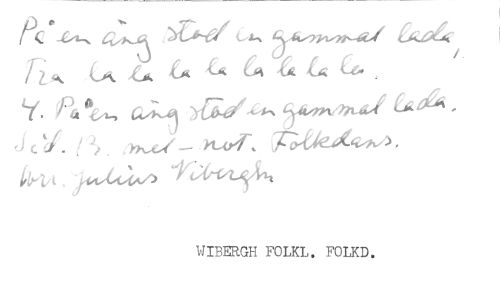 På en äng stod en gammal lada,
Tra la la la la la la la la.
4. På en äng stod en gammal lada.
Sid. 13. mel-not. Folkdans.
Arr. Julius Vibergh
WIBERGH FOLKL. FOLKD.